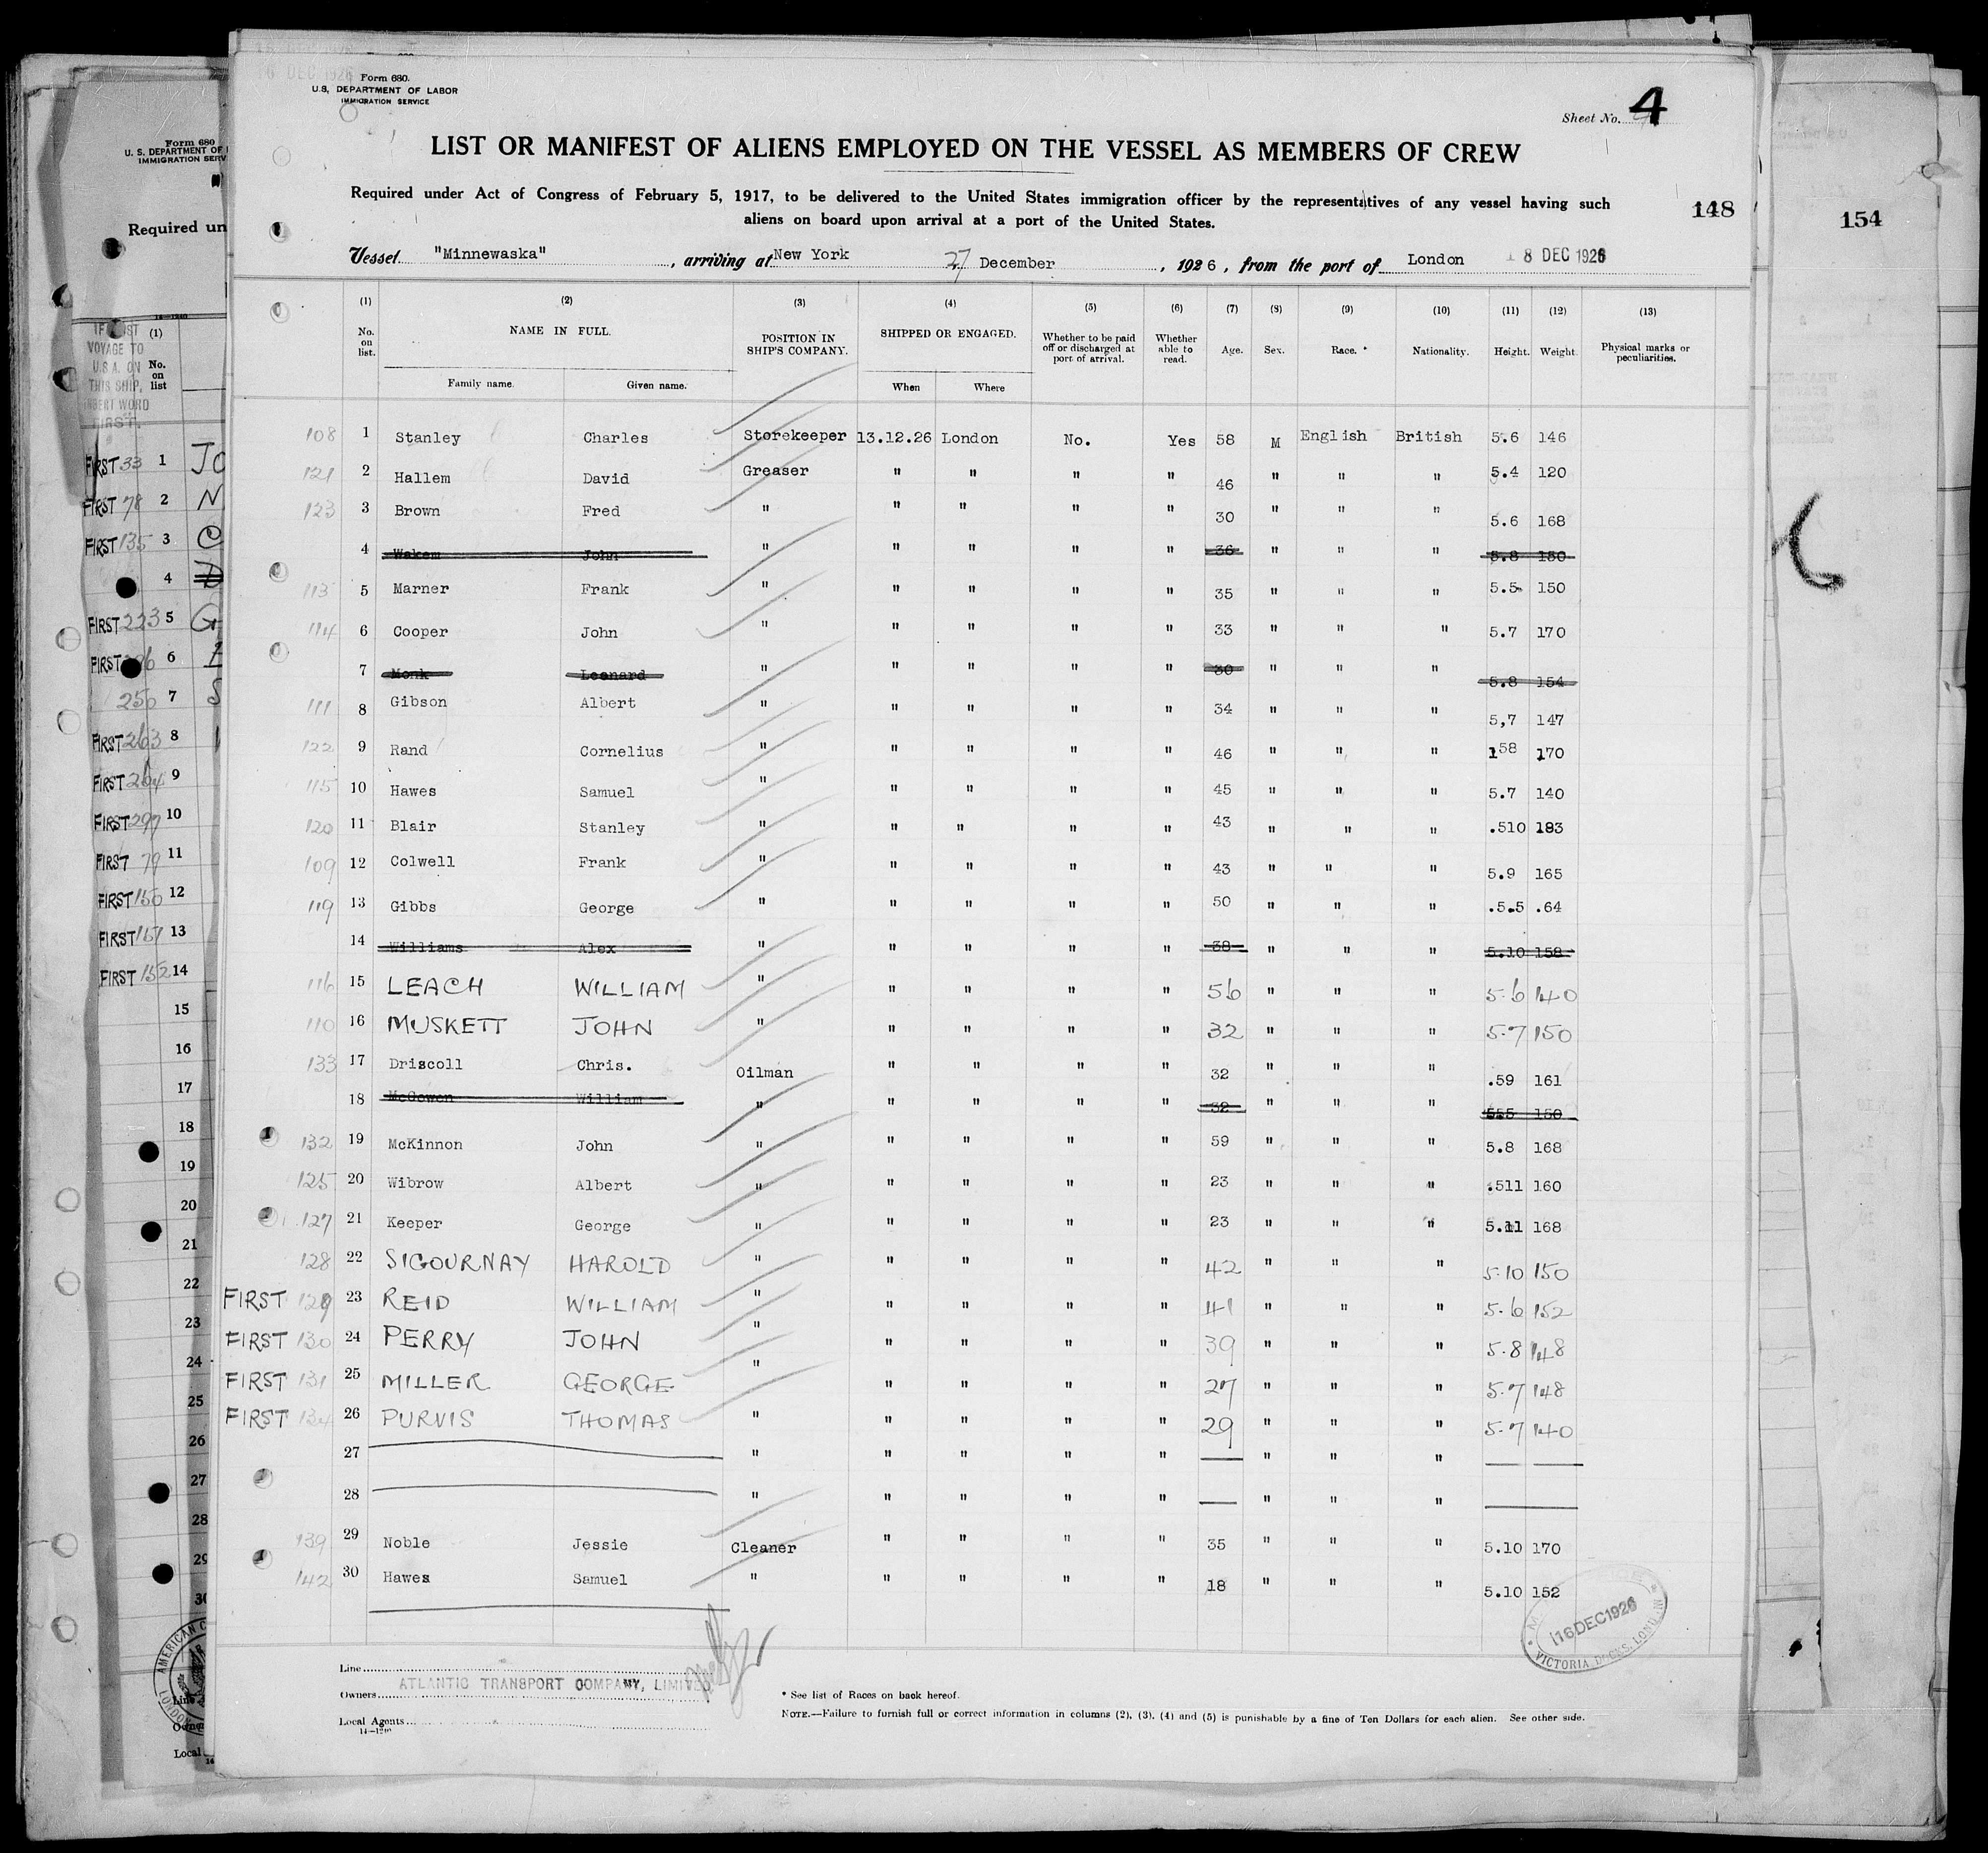 16 DEC 1926
Form 680.
U.S. DEPARTMENT OF LABOR
IMMIGRATION SERVICE
Sheet No. 4
LIST OR MANIFEST OF ALIENS EMPLOYED ON THE VESSEL AS MEMBERS OF CREW
Required under Act of Congress of February 5, 1917, to be delivered to the United States immigration officer by the representatives of any vessel having such
aliens on board upon arrival at a port of the United States.
148
154
Vessel "Minnewaska", arriving at New York 27 December, 1926, from the port of London 18 DEC 1926
(1) (2) (3) (4) (5) (6) (7) (8) (9) (10) (11) (12) (13)
No. on list. NAME IN FULL. POSITION IN SHIP'S COMPANY. SHIPPED OR ENGAGED. Whether to be paid off or discharged at port of arrival. Whether able to read. Age. Sex. Race. * Nationality. Height. Weight. Physical marks or peculiarities.
Family name. Given name. When Where
108 1 Stanley Charles Storekeeper 13.12.26 London No. Yes 58 M English British 5.6 146
121 2 Hallem David Greaser " " " " 46 " " " 5.4 120
123 3 Brown Fred " " " " " 30 " " " 5.6 168
4 Wakem John " " " " " 36 " " " 5.8 150
113 5 Marner Frank " " " " " 35 " " " 5.5 150
114 6 Cooper John " " " " " 33 " " " 5.7 170
7 Monk Leonard " " " " " 30 " " " 5.8 154
111 8 Gibson Albert " " " " " 34 " " " 5,7 147
122 9 Rand Cornelius " " " " " 46 " " " 158 170
115 10 Hawes Samuel " " " " " 45 " " " 5.7 140
120 11 Blair Stanley " " " " " 43 " " " .510 183
109 12 Colwell Frank " " " " " 43 " " " 5.9 165
119 13 Gibbs George " " " " " 50 " " " .5.5 .64
14 Williams Alex " " " " " 38 " " " 5.10 158
116 15 LEACH WILLIAM " " " " " 56 " " " 5.6 140
110 16 MUSKETT JOHN " " " " " 32 " " " 5.7 150
133 17 Driscoll Chris. Oilman " " " " 32 " " " .59 161
18 McGowen William " " " " " 32 " " " 555 150
132 19 McKinnon John " " " " " 59 " " " 5.8 168
125 20 Wibrow Albert " " " " " 23 " " " .511 160
127 21 Keeper George " " " " " 23 " " " 5.11 168
128 22 SIGOURNAY HAROLD " " " " " 42 " " " 5.10 150
FIRST 129 23 REID WILLIAM " " " " " 41 " " " 5.6 152
FIRST 130 24 PERRY JOHN " " " " " 39 " " " 5.8 148
FIRST 131 25 MILLER GEORGE " " " " " 27 " " " 5.7 148
FIRST 134 26 PURVIS THOMAS " " " " " 29 " " " 5.7 140
27 " " " " " " " "
28 " " " " " " " "
139 29 Noble Jessie Cleaner " " " " 35 " " " 5.10 170
142 30 Hawes Samuel " " " " " 18 " " " 5.10 152
16 DEC 1926
VICTORIA DOCKS. LOND.
Line
Owners ATLANTIC TRANSPORT COMPANY, LIMITED
Local Agents
* See list of Races on back hereof.
NOTE.—Failure to furnish full or correct information in columns (2), (3), (4) and (5) is punishable by a fine of Ten Dollars for each alien. See other side.
Form 680
U. S. DEPARTMENT OF
IMMIGRATION SERV
Required un
VOYAGE TO
U.S.A. ON
THIS SHIP,
INSERT WORD
FIRST.
(1)
No. on list
FIRST 33 1 JO
FIRST 78 2 N
FIRST 135 3 C
4
FIRST 223 5 G
FIRST 6
256 7 S
FIRST 263 8
FIRST 264 9
FIRST 297 10
FIRST 79 11
FIRST 150 12
FIRST 151 13
FIRST 152 14
15
16
17
18
19
20
21
22
23
24
25
26
27
28
29
30
AMERICAN C
Owner
Local